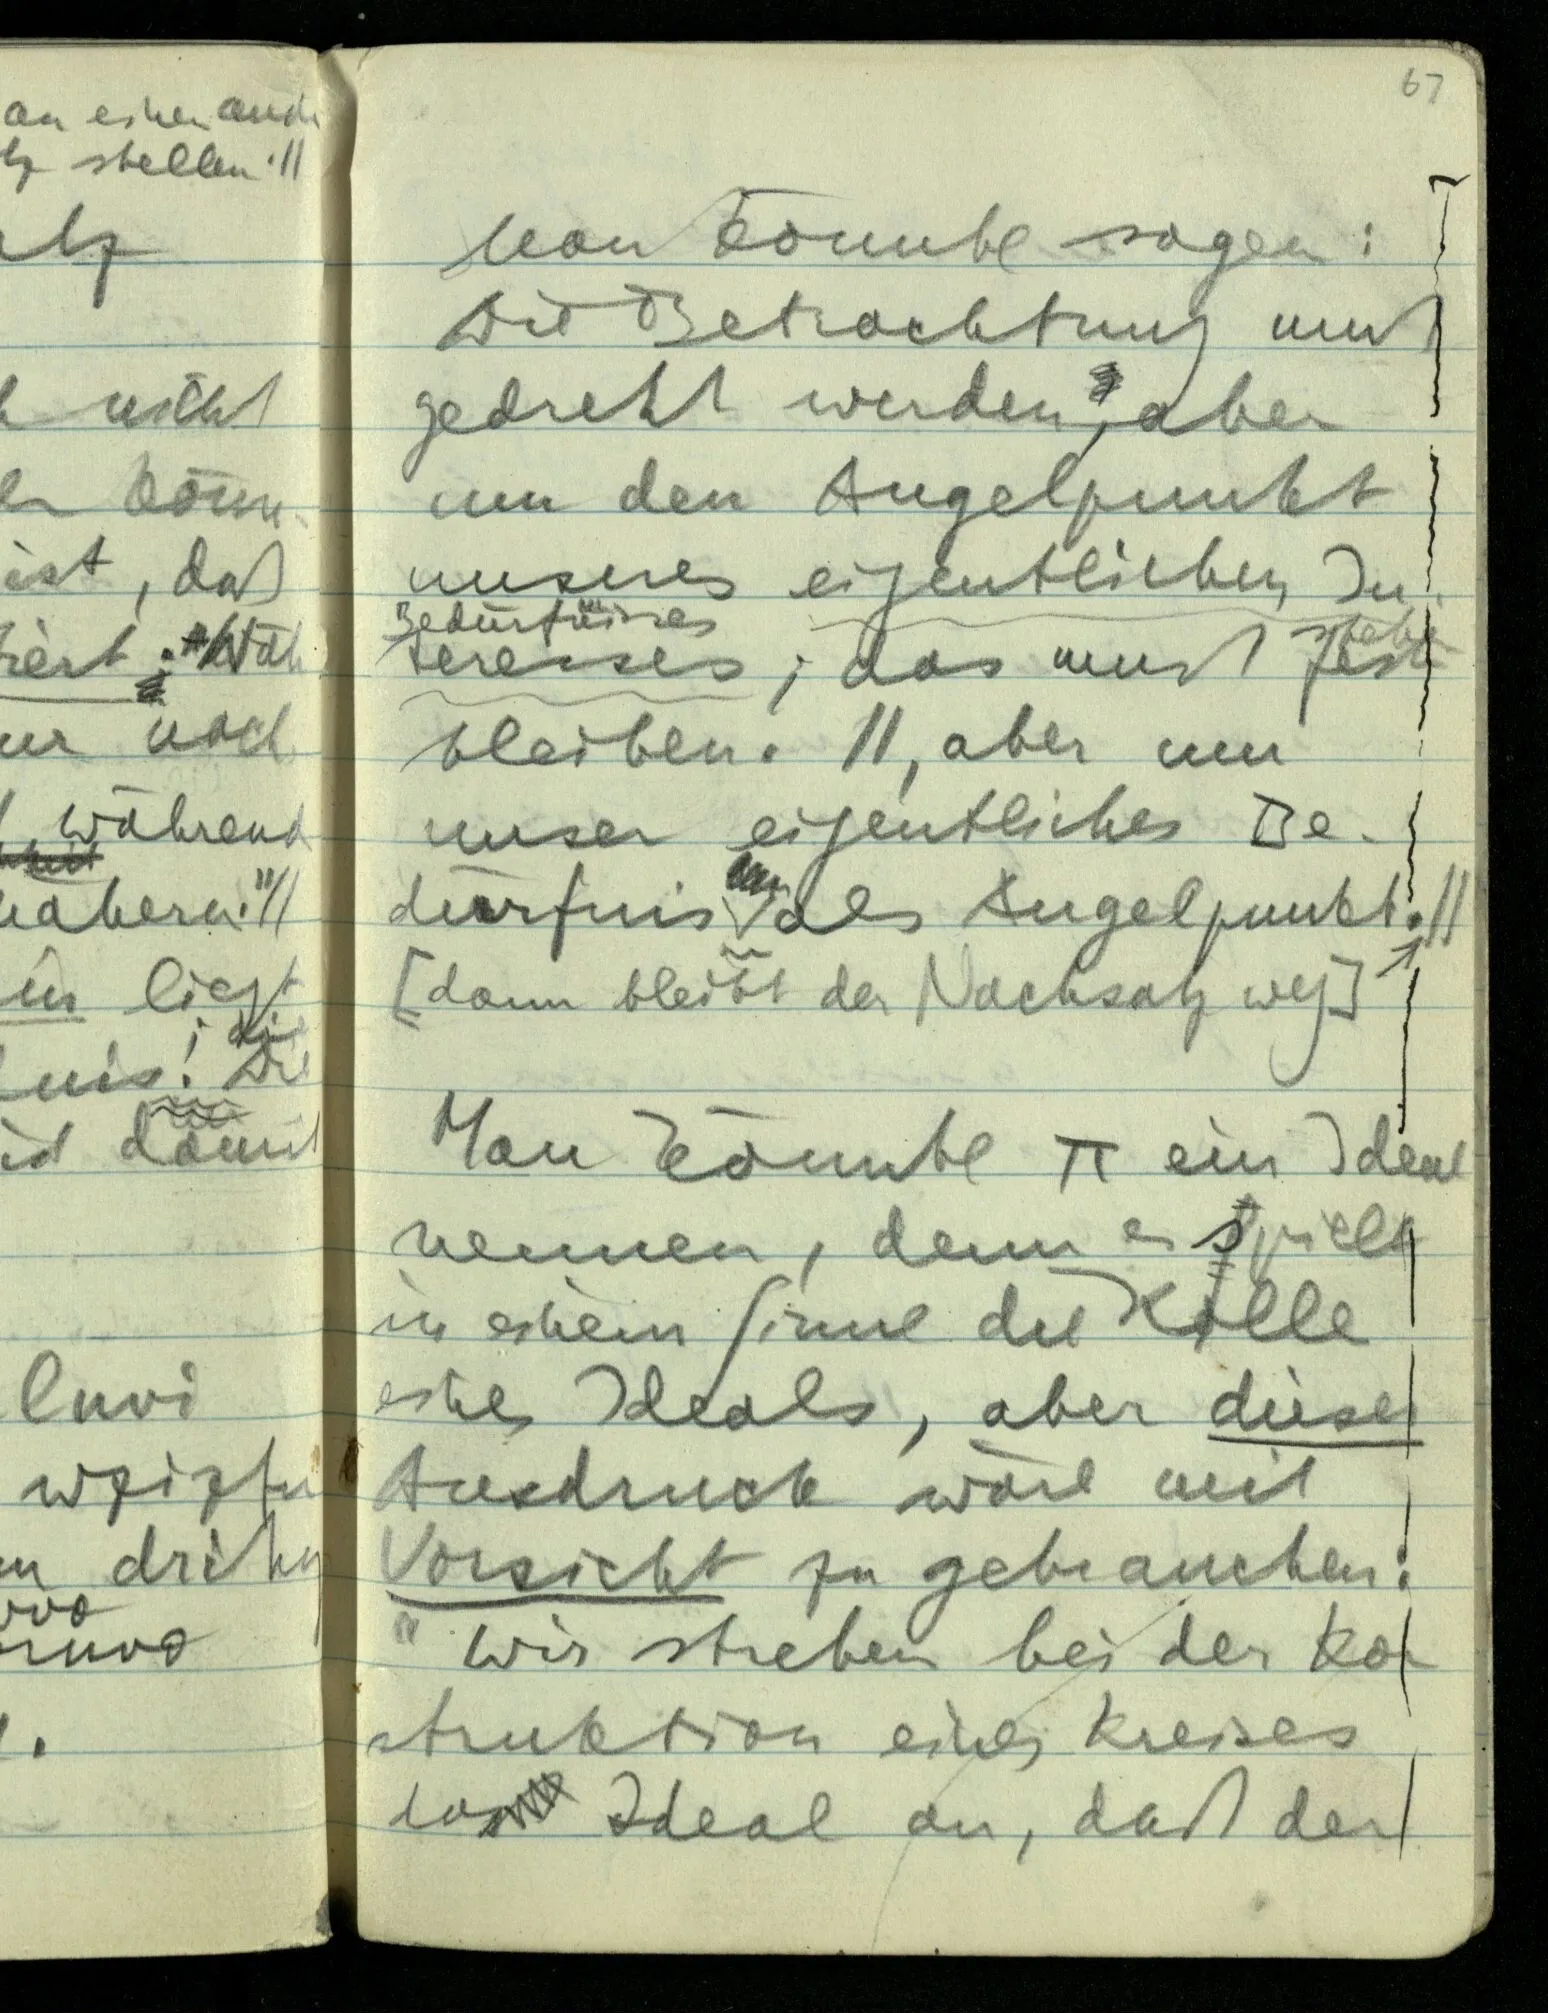 an einer and
tz stellen.//
atz
nicht
könn-
ist, daß
tiert. Wäh
ur noch
während
nähern."//
in liegt
; die
nis! Die
damit
luvi
wzizfu
drihu
67
Man könnte sagen:
Die Betrachtung muß
gedreht werden, aber
um den Angelpunkt
unseres eigentlichen In-
Bedürfnisses
teresses; das muß fest
bleiben. //, aber um
unser eigentliches Be-
dürfnis als Angelpunkt.//
[dann bleibt der Nachsatz weg]
Man könnte π ein Ideal
nennen, denn es spielt
in einem Sinne die Rolle
eines Ideals, aber dieser
Ausdruck wäre mit
Vorsicht zu gebrauchen:
"Wir streben bei der Kon
struktion eines Kreises
Ideal an, daß der